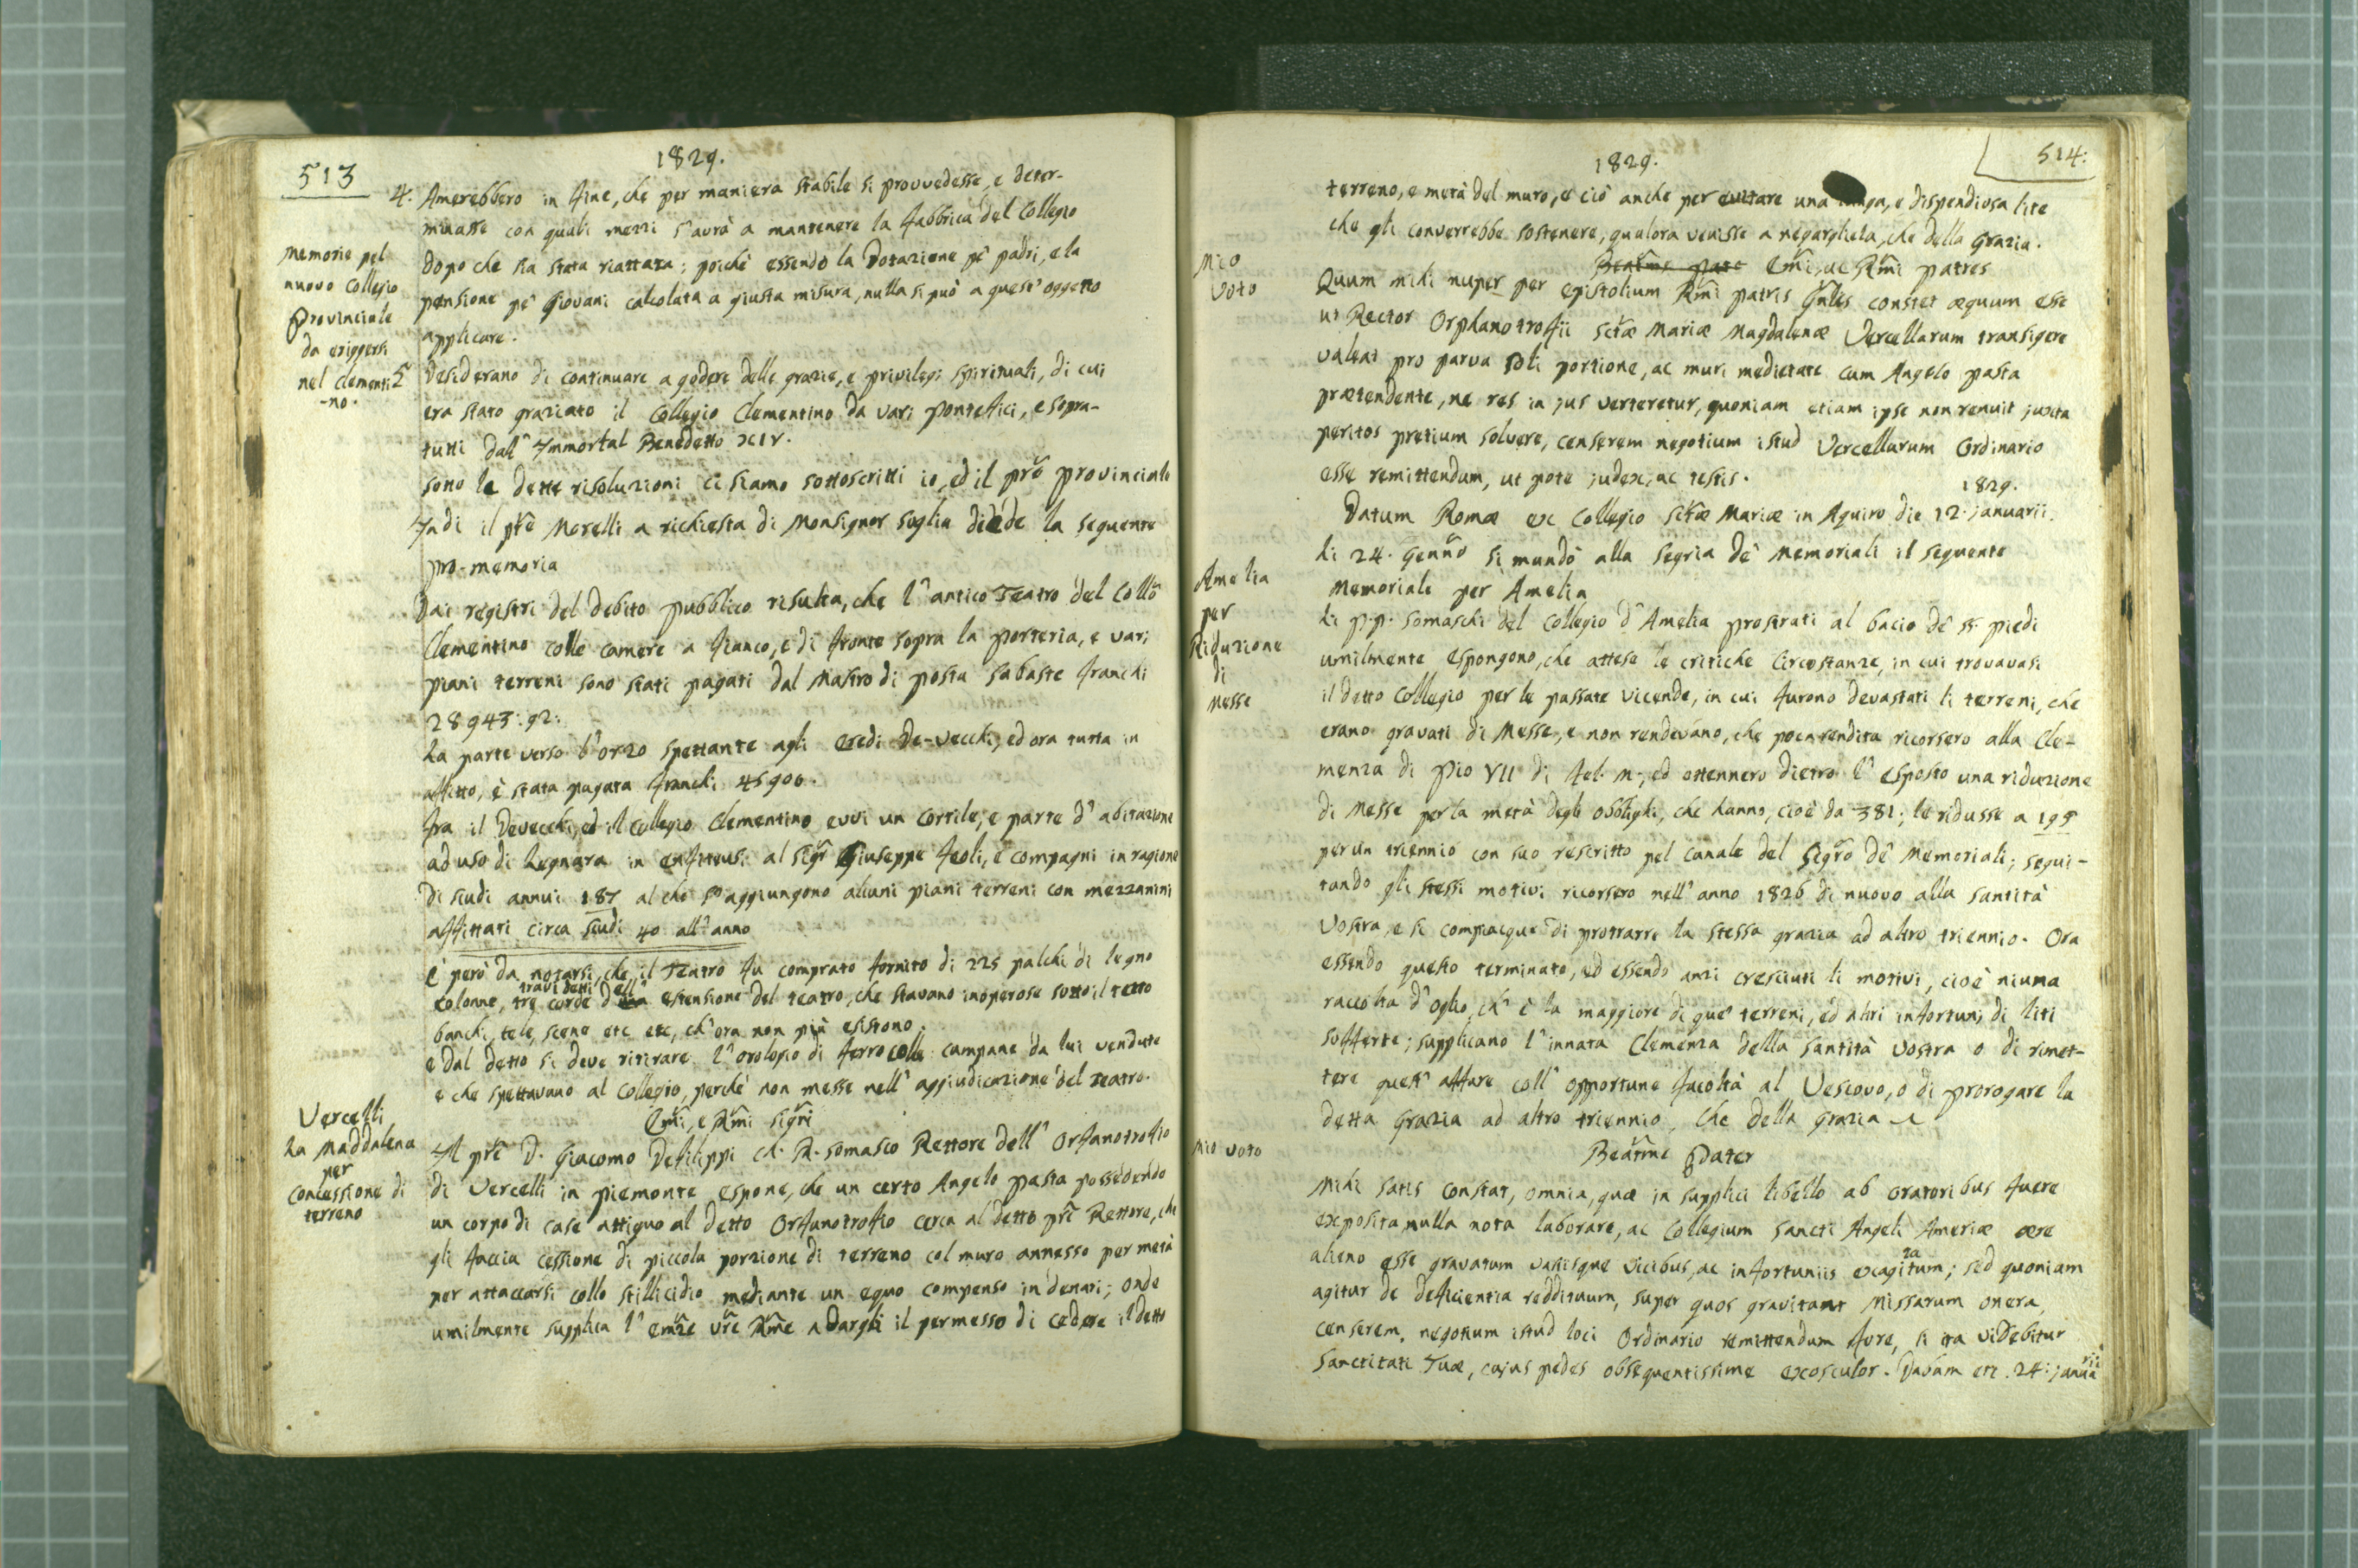 513
1829.
4. Amerebbero in fine, che per maniera stabile si provvedesse, e deter-
minasse con quali mezzi s'avrà a mantenere la fabbrica del Collegio
dopo che sia stata riattata; poichè essendo la Dotazione pe' padri, e la
pensione pe' Giovani calcolata a giusta misura, nulla si può a quest'oggetto
applicare.
Memorie pel
nuovo Collegio
Provinciale
da erigersi
nel Clementi
-no.
5 Desiderano di continuare a godere delle grazie, e privilegi spirituali, di cui
era stato graziato il Collegio Clementino da vari pontefici, e sopra-
tutti dall' Immortal Benedetto XIV.
sotto le dette risoluzioni ci siamo sottoscritti io, ed il prē provinciale
Indi il prē Morelli a richiesta di Monsignor soglia diede la seguente
pro-memoria
Dai registri del debito pubblico risulta, che l'antico Teatro del Collo
Clementino colle camere a fianco, e di fronte sopra la porteria, e vari
piani terreni sono stati pagati dal Mastro di posta Sabaste franchi
28943:92:
La parte verso l'orzo spettante agli eredi De-Vecchi, ed ora tutta in
affitto, è stata pagata franchi 45900.
fra il Devecchi, ed il Collegio Clementino evvi un cortile, e parte d'abitazione
ad uso di Legnara in enfiteusi al Sigr Giuseppe Feoli, e compagni in ragione
di scudi annui 187 al che s'aggiungono alcuni piani terreni con mezzanini
affittati circa scudi 40 all'anno
È però da notarsi, che il Teatro fu comprato fornito di 225 palchi di legno
travi detti ell'
colonne, tre corde d una estensione del teatro, che stavano inoperose sotto il tetto
banchi, tele, scene etc etc, ch'ora non più esistono.
e dal detto si deve ritirare l'orologio di ferro colle campane da lui vendute
e che spettavano al Collegio, perchè non messe nell'aggiudicazione del teatro.
Emi, e Rmi Sigri
Vercelli
La Maddalena
per
concessione di
terreno
Il prē D. Giacomo Defilippi Ch. R. somasco Rettore dell' Orfanotrofio
di Vercelli in piemonte espone, che un certo Angelo pasta possedendo
un corpo di case attiguo al detto Orfanotrofio cerca al detto prē Rettore, che
gli faccia cessione di piccola porzione di terreno col muro annesso per metà
per attaccarsi collo stillicidio mediante un equo compenso in denari; onde
umilmente supplica l'emze vre Rme a dargli il permesso di cedere il detto
514:
1829.
terreno, e metà del muro, e ciò anche per evitare una lunga, e dispendiosa lite
che gli converrebbe sostenere, qualora venisse a negargliela, che della Grazia.
Mio
Voto
Beatme pate Emi, ac Rmi patres
Quum mihi nuper per epistolium Rmi patris Gnlis constet æquum esse
ut Rector Orphanotrofii sctæ Mariæ Magdalenæ Vercellarum transigere
valeat pro parva soli portione, ac muri medietate cum Angelo pasta
prætendente, ne res in jus verteretur, quoniam etiam ipse non renuit juxta
peritos pretium solvere, censerem negotium istud Vercellarum Ordinario
esse remittendum, ut pote judex, ac testis.
1829.
Datum Romæ ex Collegio sctæ Mariæ in Aquiro die 12. januarii.
Amelia
per
Riduzione
di
Messe
Li 24. Gennō si mandò alla Segria de' Memoriali il seguente
Memoriale per Amelia
Li P.P. Somaschi del Collegio d'Amelia prostrati al bacio de' SS. piedi
umilmente espongono, che attese le critiche circostanze, in cui trovavasi
il detto Collegio per le passate vicende, in cui furono devastati li terreni, che
erano gravati di Messe, e non rendevano, che poca rendita ricorsero alla Cle-
menza di Pio VII di fel. m., ed ottennero dietro l'esposto una riduzione
di Messe per la metà degli obblighi, che hanno, cioè da 381; le ridusse a 195
per un triennio con suo rescritto pel canale del Sigro de' Memoriali; segui-
tando gli stessi motivi ricorsero nell'anno 1826 di nuovo alla Santità
Vostra, e si compiacque di protrarre la stessa grazia ad altro triennio. Ora
essendo questo terminato, ed essendo anzi cresciuti li motivi, cioè niuna
raccolta d'Oglio, ch'è la maggiore di que' terreni, ed altri infortuni di liti
sofferte; supplicano l'innata Clemenza della Santità Vostra o di rimet-
tere quest'affare coll'opportune facoltà al Vescovo, o di prorogare la
detta Grazia ad altro triennio. Che della Grazia
Mio voto
Beatme Pater
Mihi satis constat, omnia, quæ in supplici libello ab oratoribus fuere
exposita, nulla nota laborare, ac Collegium Sancti Angeli Ameriæ ære
alieno esse gravatum variisque vicibus, ac infortuniis exagitatum; sed quoniam
agitur de deficientia reddituum, super quos gravitant Missarum onera,
censerem, negotium istud loci Ordinario remittendum fore, si ita videbitur
Sanctitati Tuæ, cujus pedes obsequentissime exosculor. Dabam etc. 24: januarii